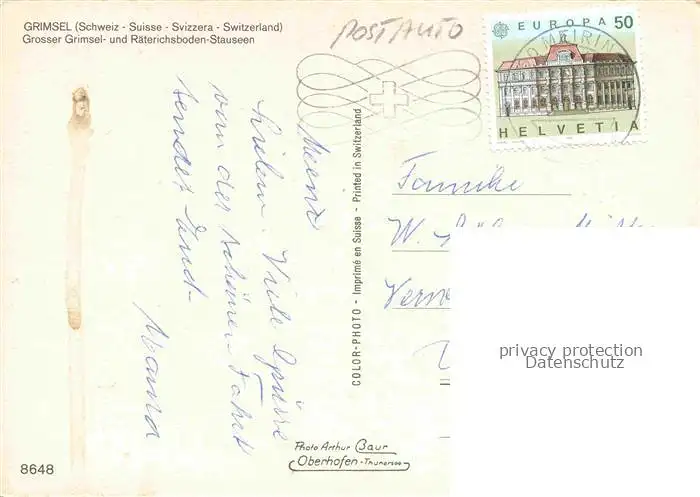 GRIMSEL (Schweiz - Suisse - Svizzera - Switzerland)
Grosser Grimsel- und Räterichsboden-Stauseen
POSTAUTO
EUROPA 50
MEIRIN
HELVETIA
Meine
Lieben. Viele Grüsse
von der schönen Fahrt
sendet Euch
COLOR-PHOTO - Imprimé en Suisse - Printed in Switzerland
Familie
W.
privacy protection
Datenschutz
Photo Arthur Baur
Oberhofen-Thunersee
8648